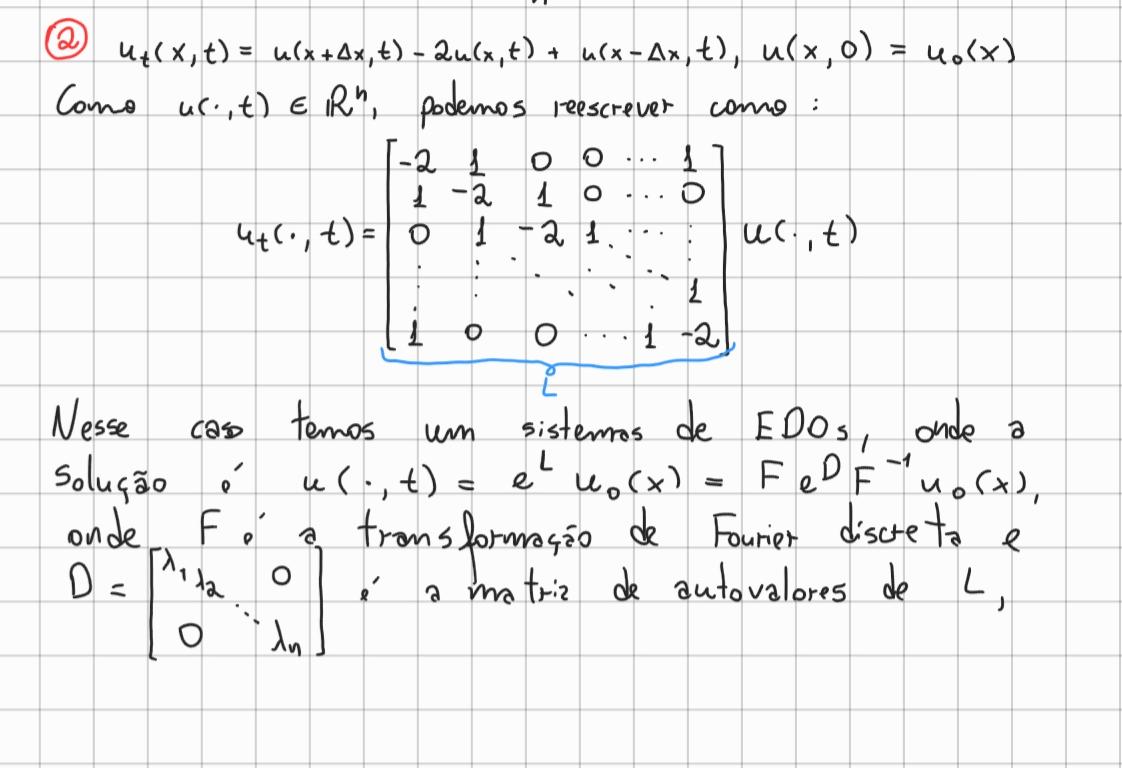 ② u_t(x,t) = u(x+Δx,t) - 2u(x,t) + u(x-Δx,t), u(x,0) = u₀(x)
Como u(·,t) ∈ ℝⁿ, podemos reescrever como :
-2 1 0 0 ... 1
1 -2 1 0 ... 0
u_t(·,t) = 0 1 -2 1 ... ⋮ u(·,t)
⋮ ⋮ ⋱ ⋱ ⋱ 1
1 0 0 ... 1 -2
L
Nesse caso temos um sistemas de EDOs, onde a
solução é u(·,t) = e^L u₀(x) = F e^D F^-1 u₀(x),
onde F é a transformação de Fourier discreta e
D = [λ₁ λ₂ ⋱ λn 0 0] é a matriz de autovalores de L,